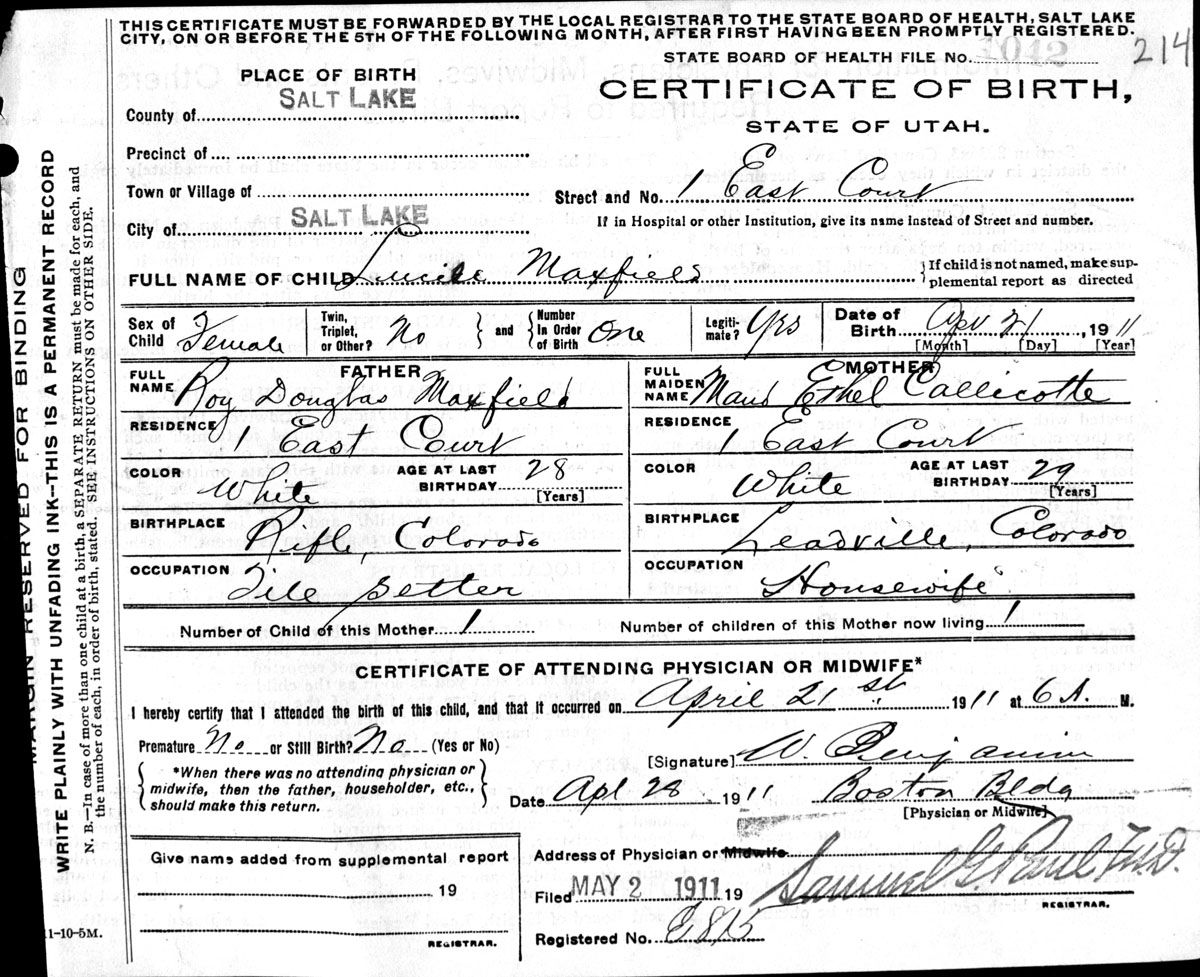 THIS CERTIFICATE MUST BE FORWARDED BY THE LOCAL REGISTRAR TO THE STATE BOARD OF HEALTH, SALT LAKE
CITY, ON OR BEFORE THE 5TH OF THE FOLLOWING MONTH, AFTER FIRST HAVING BEEN PROMPTLY REGISTERED.
214
STATE BOARD OF HEALTH FILE No. 1042
PLACE OF BIRTH
CERTIFICATE OF BIRTH,
STATE OF UTAH.
County of SALT LAKE
Precinct of
Town or Village of
Street and No. 1 East Court
City of SALT LAKE
If in Hospital or other Institution, give its name instead of Street and number.
FULL NAME OF CHILD Lucile Maxfield
If child is not named, make sup-
plemental report as directed
Sex of Child Female
Twin, Triplet, or Other? No
and Number In Order of Birth One
Legiti- mate? Yes
Date of Birth Apr 21 1911
[Month] [Day] [Year]
FATHER
FULL NAME Roy Douglas Maxfield
RESIDENCE 1 East Court
COLOR White AGE AT LAST BIRTHDAY 28 [Years]
BIRTHPLACE Rifle, Colorado
OCCUPATION Tile Setter
MOTHER
FULL MAIDEN NAME Maud Ethel Callicotte
RESIDENCE 1 East Court
COLOR White AGE AT LAST BIRTHDAY 29 [Years]
BIRTHPLACE Leadville, Colorado
OCCUPATION Housewife
Number of Child of this Mother 1 Number of children of this Mother now living 1
CERTIFICATE OF ATTENDING PHYSICIAN OR MIDWIFE*
I hereby certify that I attended the birth of this child, and that it occurred on April 21st 1911 at 6 A. M.
Premature No or Still Birth? No (Yes or No)
[Signature] W. Benjamin
*When there was no attending physician or
midwife, then the father, householder, etc.,
should make this return.
Date Apl 28 1911 Boston Bldg
[Physician or Midwife]
Give name added from supplemental report
19
REGISTRAR.
Address of Physician or Midwife
Filed MAY 2 1911 19 Samuel G. Paul M.D.
REGISTRAR.
Registered No.
11-10-5M.
MARGIN RESERVED FOR BINDING
WRITE PLAINLY WITH UNFADING INK--THIS IS A PERMANENT RECORD
N. B.--In case of more than one child at a birth, a SEPARATE RETURN must be made for each, and
the number of each, in order of birth, stated. SEE INSTRUCTIONS ON OTHER SIDE.